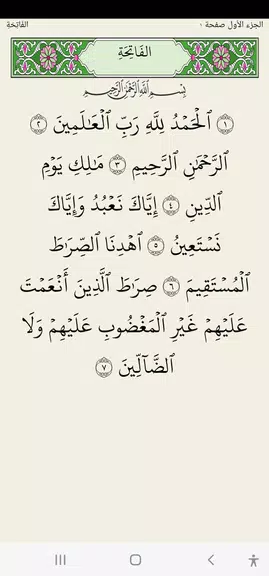 الجزء الأول صفحة
الفَاتِحَة
الفَاتِحَةِ
بِسْمِ ٱللَّهِ ٱلرَّحْمَٰنِ ٱلرَّحِيمِ
١ ٱلْحَمْدُ لِلَّهِ رَبِّ ٱلْعَٰلَمِينَ ٢
ٱلرَّحْمَٰنِ ٱلرَّحِيمِ ٣ مَٰلِكِ يَوْمِ
ٱلدِّينِ ٤ إِيَّاكَ نَعْبُدُ وَإِيَّاكَ
نَسْتَعِينُ ٥ ٱهْدِنَا ٱلصِّرَٰطَ
ٱلْمُسْتَقِيمَ ٦ صِرَٰطَ ٱلَّذِينَ أَنْعَمْتَ
عَلَيْهِمْ غَيْرِ ٱلْمَغْضُوبِ عَلَيْهِمْ وَلَا
ٱلضَّآلِّينَ ٧